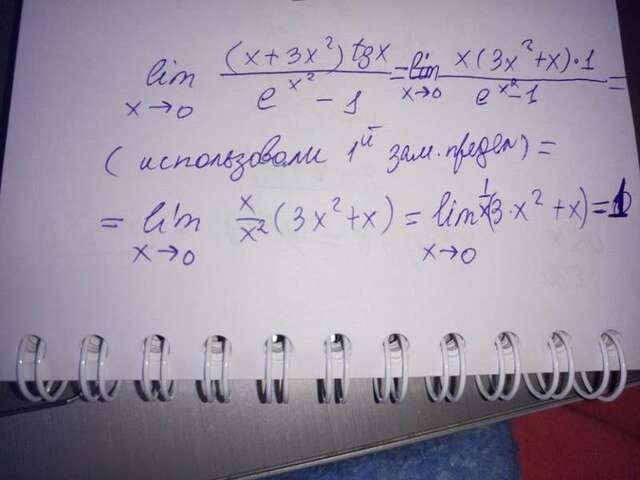 lim x→0 (x+3x²)tgx / e^x² − 1 = lim x→0 x(3x²+x)·1 / e^x²−1 =
(использовали 1й зам. предел) =
= lim x→0 x/x² (3x²+x) = lim x→0 1/x (3·x²+x) = 1